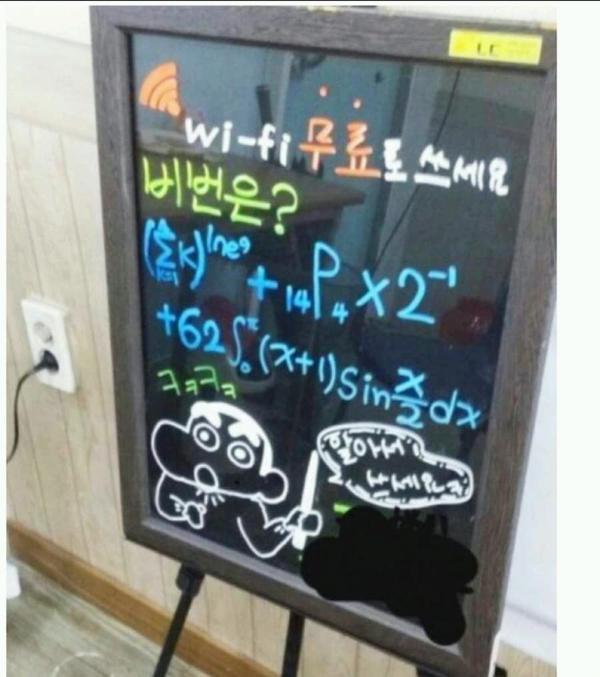 LC
wi-fi 무료로 쓰세요
비번은?
(∑k)^lne⁹ + ₁₄P₄ × 2⁻¹
+62∫₀^π (x+1)sin x/2 dx
ㅋㅋㅋㅋ
알아서
쓰세요